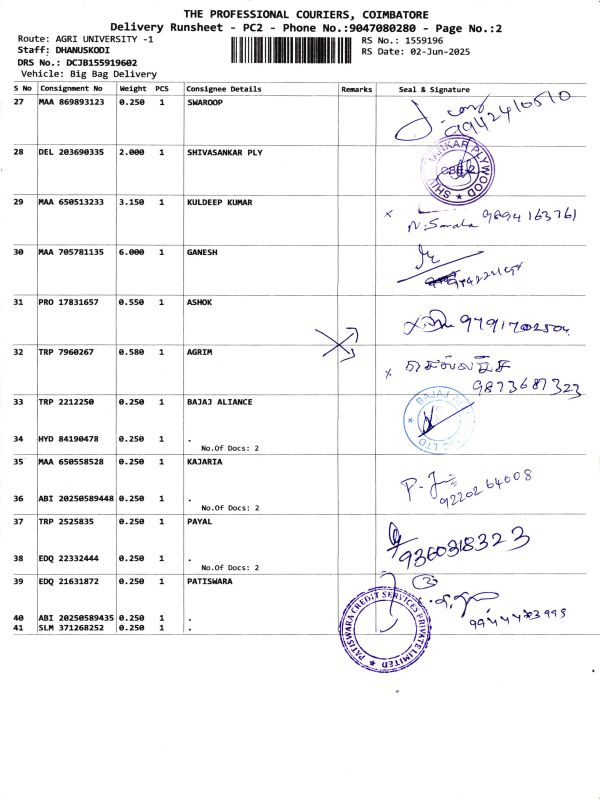 THE PROFESSIONAL COURIERS, COIMBATORE
Delivery Runsheet - PC2 - Phone No.:9047080280 - Page No.:2
Route: AGRI UNIVERSITY -1 RS No.: 1559196
Staff: DHANUSKODI RS Date: 02-Jun-2025
DRS No.: DCJB155919602
Vehicle: Big Bag Delivery
S No Consignment No Weight PCS Consignee Details Remarks Seal & Signature
27 MAA 869893123 0.250 1 SWAROOP
9942410510
28 DEL 203690335 2.000 1 SHIVASANKAR PLY
PLYWOOD
29 MAA 650513233 3.150 1 KULDEEP KUMAR
x N. Sarala 9894163761
30 MAA 705781135 6.000 1 GANESH
31 PRO 17831657 0.550 1 ASHOK
9791702504
32 TRP 7960267 0.580 1 AGRIM
x 9873687323
33 TRP 2212250 0.250 1 BAJAJ ALIANCE
BAJAJ
34 HYD 84190478 0.250 1 .
No.Of Docs: 2
35 MAA 650558528 0.250 1 KAJARIA
9220264008
36 ABI 20250589448 0.250 1 .
No.Of Docs: 2
37 TRP 2525835 0.250 1 PAYAL
9360318323
38 EDQ 22332444 0.250 1 .
No.Of Docs: 2
39 EDQ 21631872 0.250 1 PATISWARA
3
PATISWARA CREDIT SERVICES PRIVATE LIMITED
40 ABI 20250589435 0.250 1 .
41 SLM 371268252 0.250 1 .